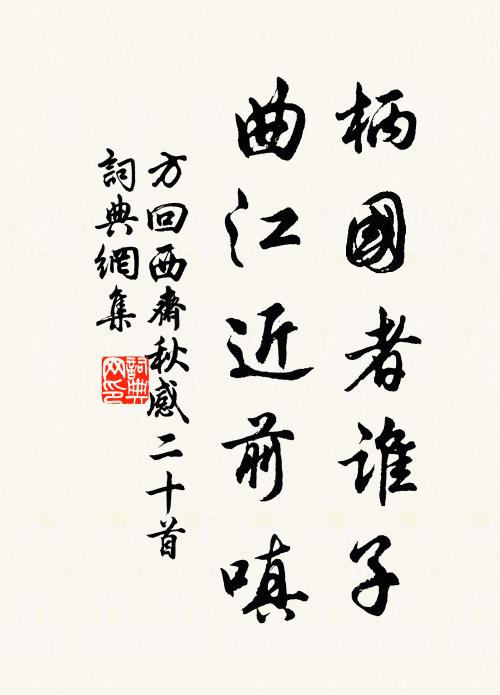 柄國者誰子
曲江近前嗔
方回西齋秋感二十首
詞典網集
詞典網印